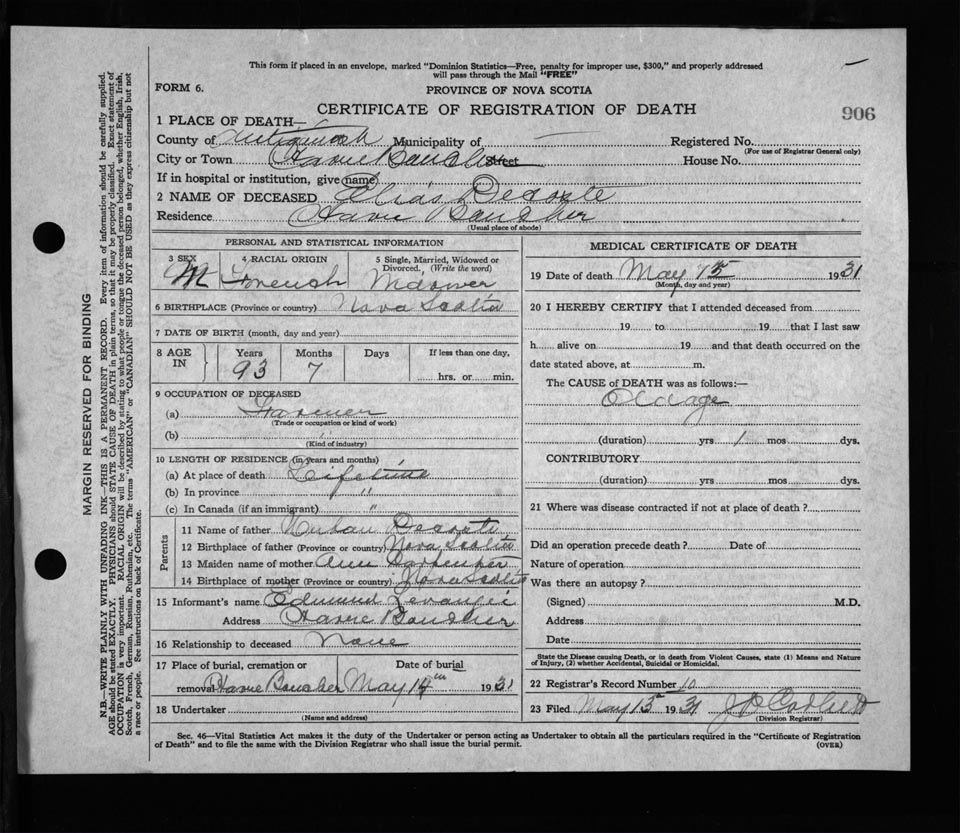 This form if placed in an envelope, marked "Dominion Statistics—Free, penalty for improper use, $300," and properly addressed
will pass through the Mail "FREE"
FORM 6.
PROVINCE OF NOVA SCOTIA
CERTIFICATE OF REGISTRATION OF DEATH
906
1 PLACE OF DEATH—
County of Antigonish Municipality of Registered No.
(For use of Registrar General only)
City or Town Street House No.
If in hospital or institution, give name
2 NAME OF DECEASED Elias Decoste
Residence Havre Boucher
(Usual place of abode)
PERSONAL AND STATISTICAL INFORMATION
3 SEX
M
4 RACIAL ORIGIN
French
5 Single, Married, Widowed or
Divorced, (Write the word)
6 BIRTHPLACE (Province or country) Nova Scotia
7 DATE OF BIRTH (month, day and year)
8 AGE
IN
Years
93
Months
7
Days
If less than one day,
hrs. or min.
9 OCCUPATION OF DECEASED
(a) Farmer
(Trade or occupation or kind of work)
(b)
(Kind of industry)
10 LENGTH OF RESIDENCE (in years and months)
(a) At place of death Lifetime
(b) In province "
(c) In Canada (if an immigrant) "
Parents
11 Name of father Decoste
12 Birthplace of father (Province or country) Nova Scotia
13 Maiden name of mother Ann
14 Birthplace of mother (Province or country) Nova Scotia
15 Informant's name Edmund
Address Havre Boucher
16 Relationship to deceased None
17 Place of burial, cremation or
removal Havre Boucher
Date of burial
May 1931
18 Undertaker
(Name and address)
MEDICAL CERTIFICATE OF DEATH
19 Date of death May 1931
(Month, day and year)
20 I HEREBY CERTIFY that I attended deceased from
19 to 19 that I last saw
h alive on 19 and that death occurred on the
date stated above, at m.
The CAUSE of DEATH was as follows:—
Old age
(duration) yrs 1 mos dys.
CONTRIBUTORY
(duration) yrs mos dys.
21 Where was disease contracted if not at place of death?
Did an operation precede death? Date of
Nature of operation
Was there an autopsy?
(Signed) M.D.
Address
Date
State the Disease causing Death, or in death from Violent Causes, state (1) Means and Nature
of Injury, (2) whether Accidental, Suicidal or Homicidal.
22 Registrar's Record Number 10
23 Filed May 15 1931
(Division Registrar)
Sec. 46—Vital Statistics Act makes it the duty of the Undertaker or person acting as Undertaker to obtain all the particulars required in the "Certificate of Registration
of Death" and to file the same with the Division Registrar who shall issue the burial permit.
(OVER)
MARGIN RESERVED FOR BINDING
N.B. WRITE PLAINLY WITH UNFADING INK—THIS IS A PERMANENT RECORD. Every item of information should be carefully supplied.
AGE should be stated EXACTLY. PHYSICIANS should STATE CAUSE OF DEATH in plain terms, so that it may be properly classified. Exact statement of
OCCUPATION is very important. RACIAL ORIGIN will be described by stating to what people or tongue the deceased person belonged, whether English, Irish,
Scotch, French, German, Russian, Ruthenian, etc. The terms "AMERICAN" or "CANADIAN" SHOULD NOT BE USED as they express citizenship but not
a race or people. See instructions on back of Certificate.